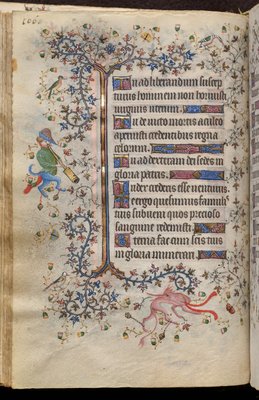 Tu ad liberandum suscep
turus hominem non horruisti
virginis uterum
Tu devicto mortis aculeo
aperuisti credentibus regna
celorum
Tu ad dexteram dei sedes in
gloria patris
Iudex crederis esse venturus
Te ergo quesumus famulis
tuis subveni quos precioso
sanguine redemisti
Eterna fac cum sanctis tuis
in gloria munerari